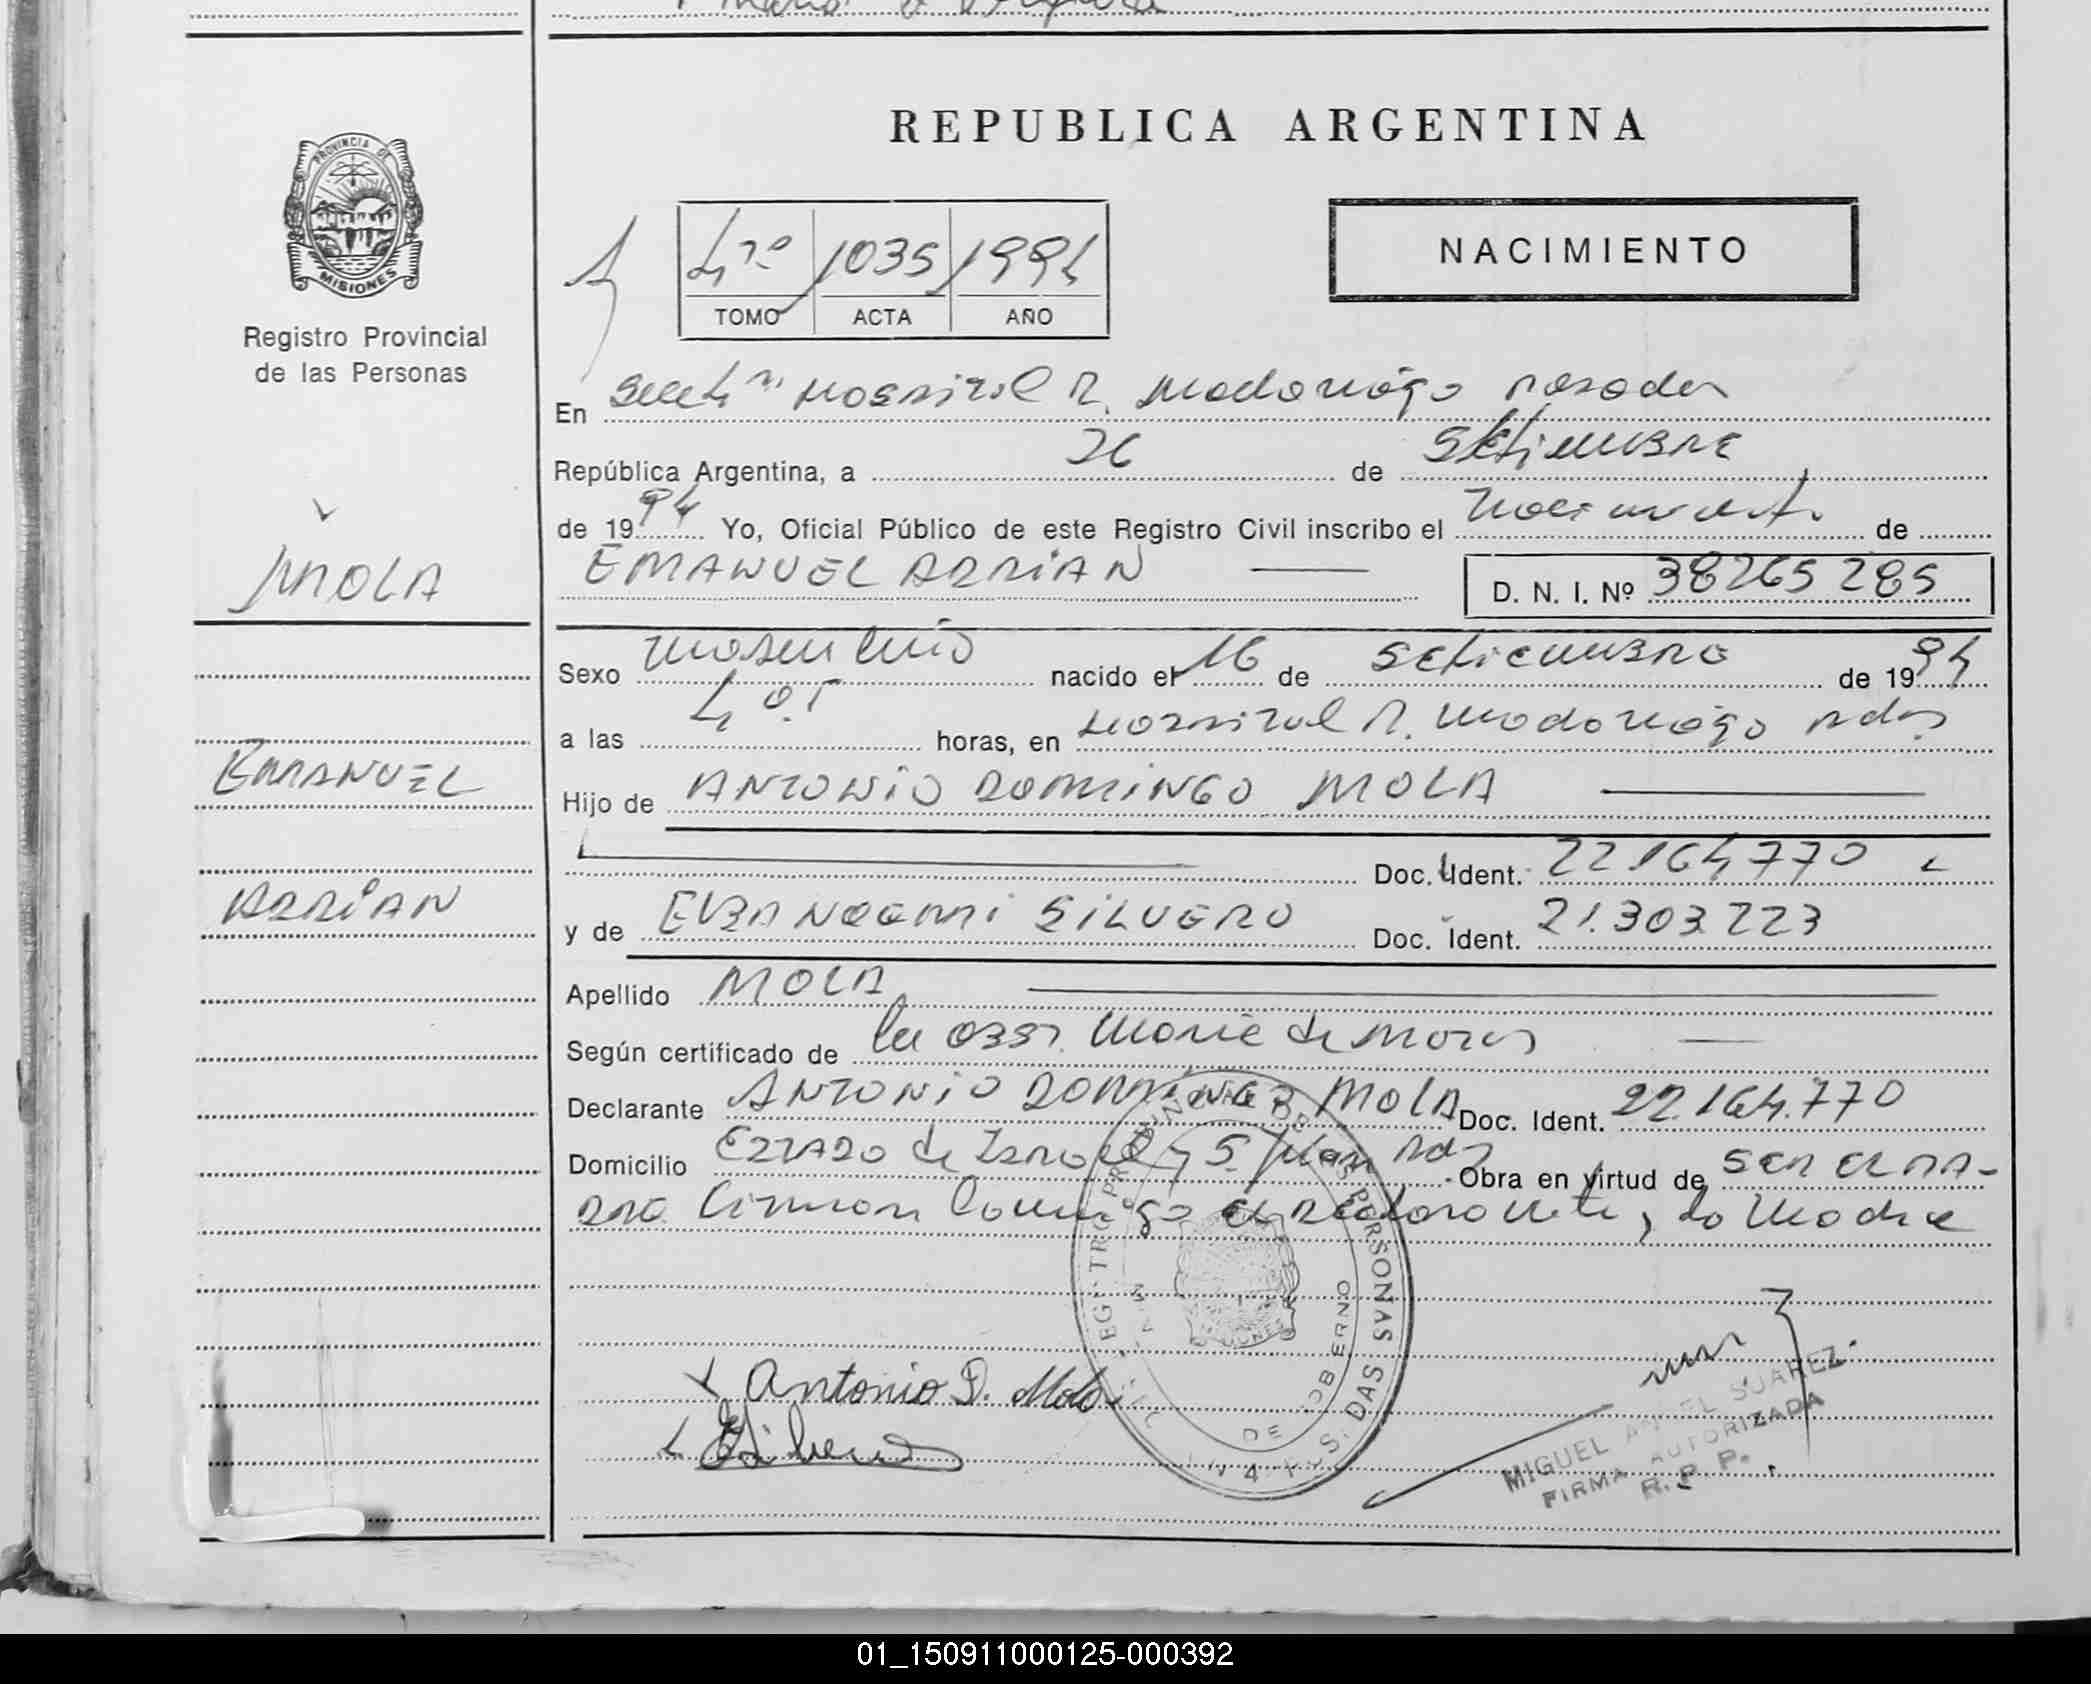 REPUBLICA ARGENTINA
PROVINCIA DE
MISIONES
Registro Provincial
de las Personas
4to 1035 1994
TOMO ACTA AÑO
NACIMIENTO
En Secc 4ta Hospital R. Madariaga Posadas
República Argentina, a 26 de Setiembre
de 1994 Yo, Oficial Público de este Registro Civil inscribo el nacimiento de
EMANUEL ADRIAN D. N. I. Nº 38265285
MOLA
EMANUEL
ADRIAN
Sexo masculino nacido el 16 de Setiembre de 1994
a las 4,05 horas, en Hospital R. Madariaga Pdas
Hijo de ANTONIO DOMINGO MOLA
Doc. Ident. 22164770
y de ELBA NOEMI SILVERO Doc. Ident. 21.303.223
Apellido MOLA
Según certificado de la Obst. de
Declarante ANTONIO DOMINGO MOLA Doc. Ident. 22.164.770
Domicilio Estado de Israel y S. Pdas Obra en virtud de ser el PA-
DRE Firman Conmigo el declarante, la Madre
REGISTRO PROVINCIAL DE LAS PERSONAS
DE GOBIERNO
Antonio D. Mola
MIGUEL ANGEL SUAREZ
FIRMA AUTORIZADA
R. P. P.
01_150911000125-000392